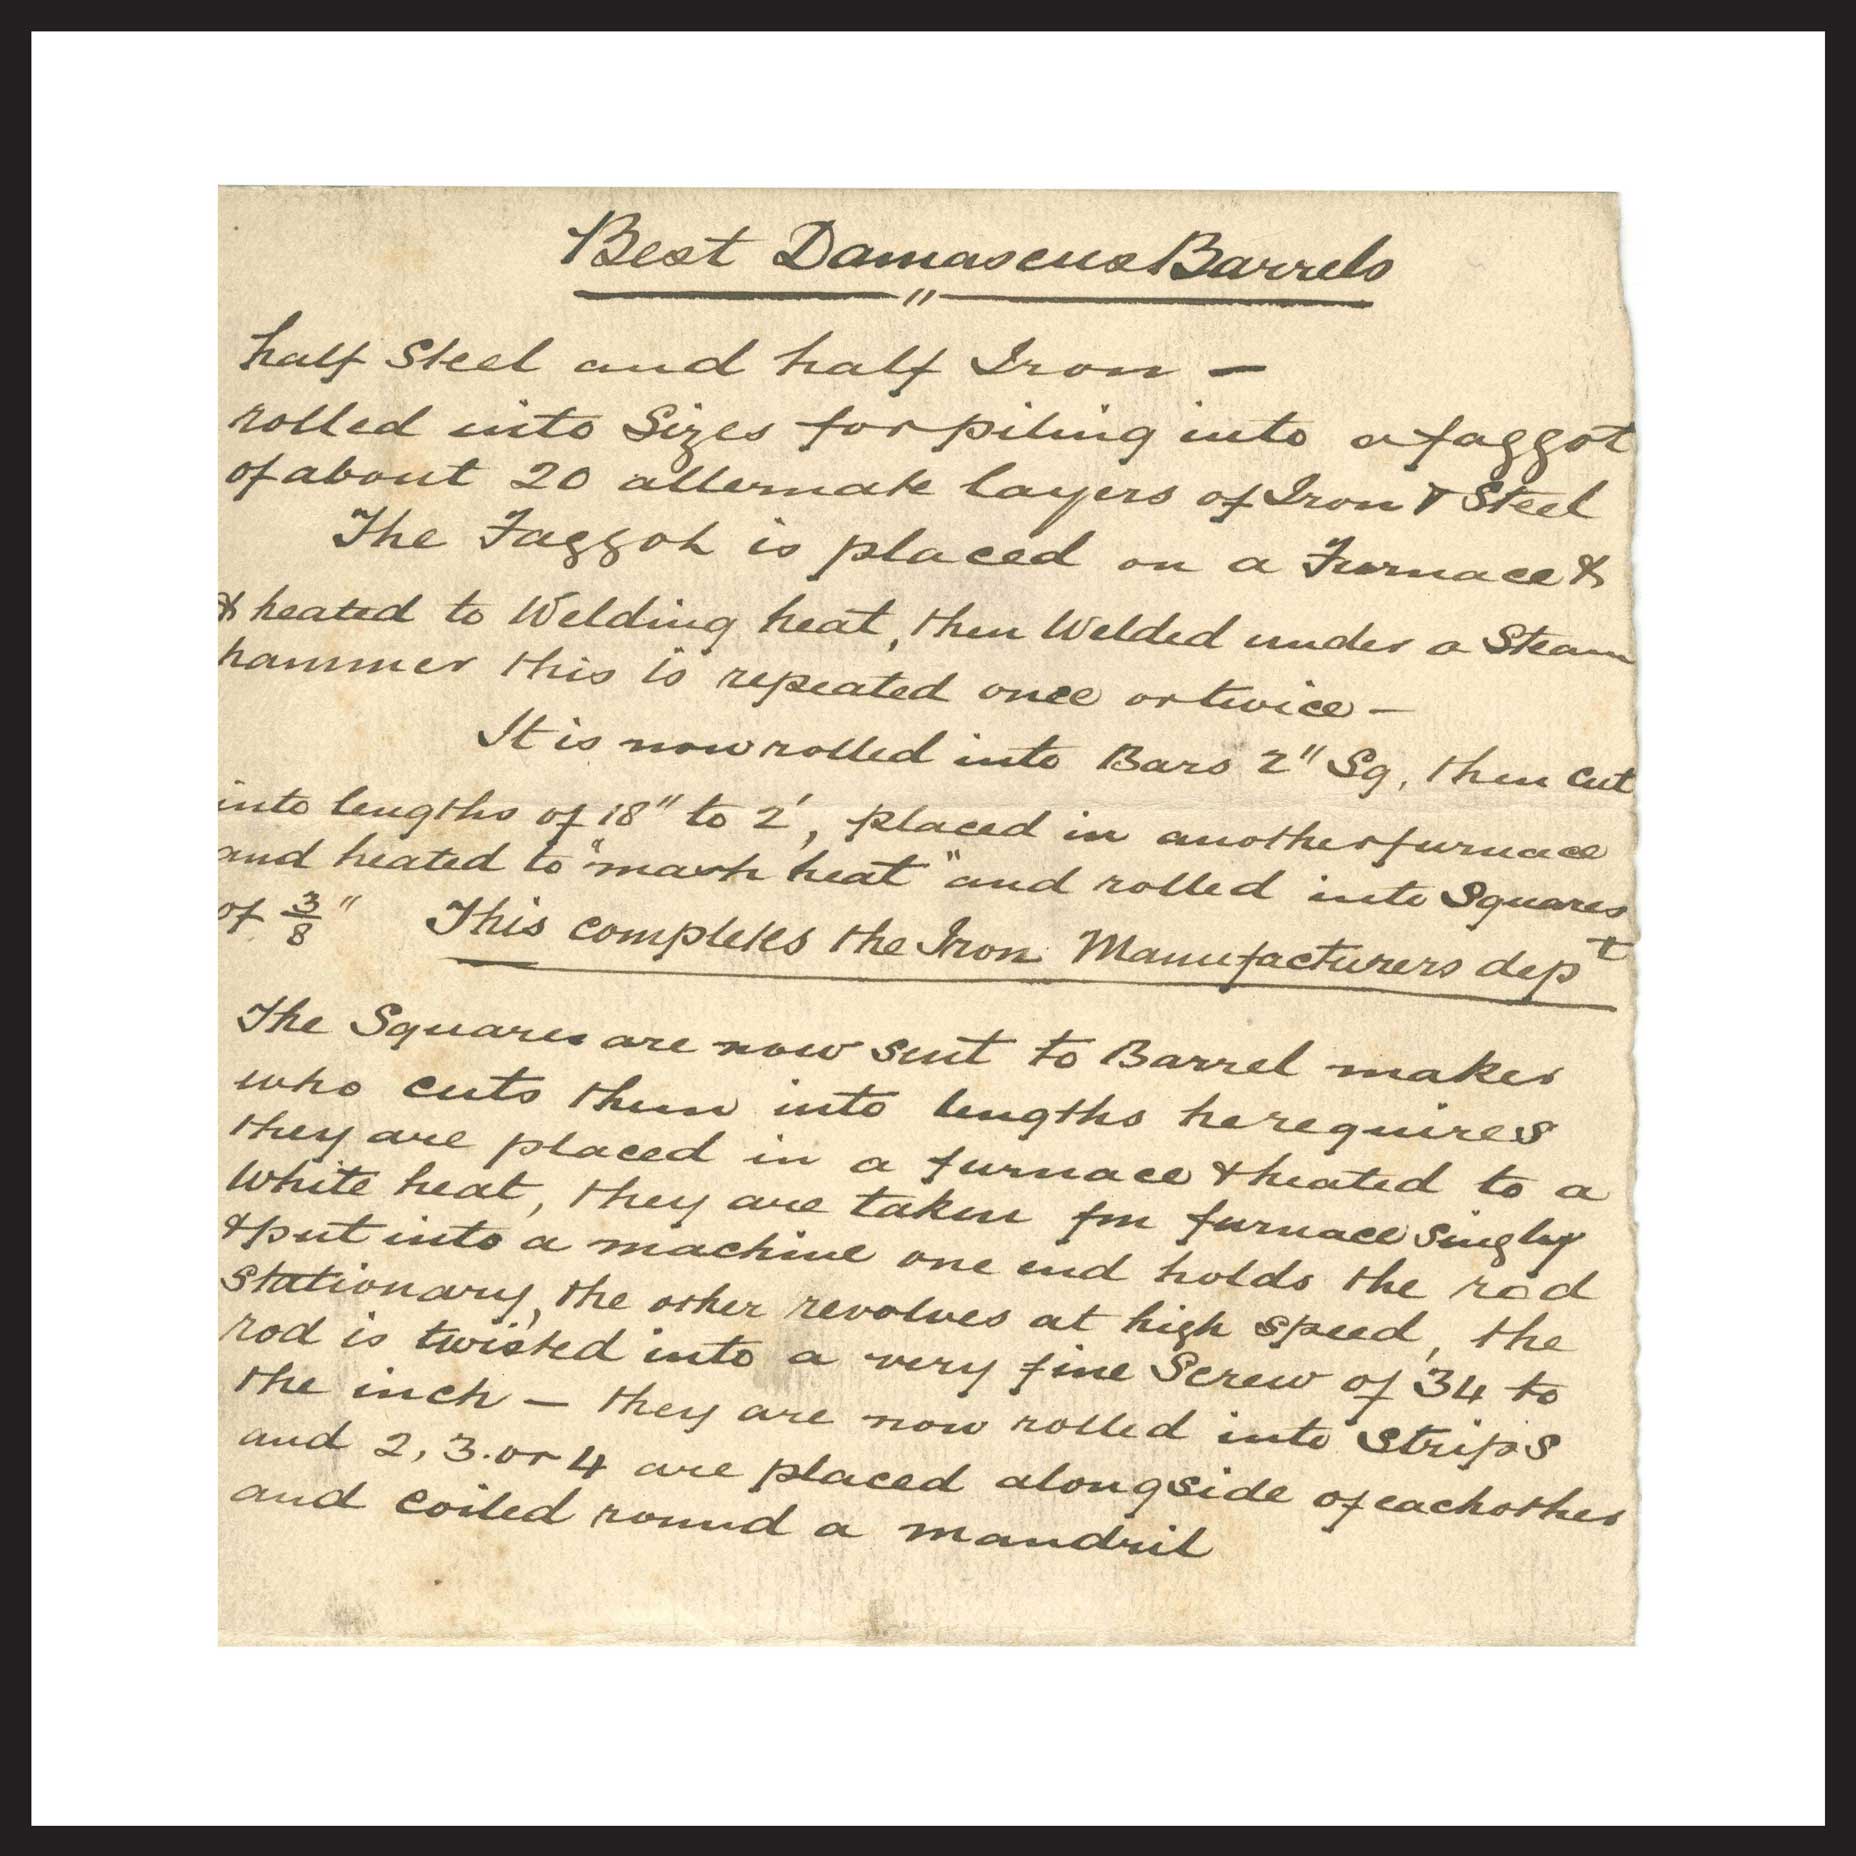 Best Damascus Barrels
"
half Steel and half Iron —
rolled into Sizes for piling into a faggot
of about 20 alternate layers of Iron & Steel
The Faggot is placed on a Furnace &
& heated to Welding heat, then Welded under a Steam
hammer this is repeated once or twice —
It is now rolled into Bars 2" Sq, then cut
into lengths of 18" to 2', placed in another furnace
and heated to "mash heat" and rolled into Squares
of 3/8" This completes the Iron Manufacturers dept
The Squares are now sent to Barrel maker
who cuts them into lengths he requires
they are placed in a furnace & heated to a
White heat, they are taken fm furnace singly
& put into a machine one end holds the rod
stationary, the other revolves at high speed, the
rod is twisted into a very fine Screw of 34 to
the inch — they are now rolled into strips
and 2, 3. or 4 are placed alongside of each other
and coiled round a mandril